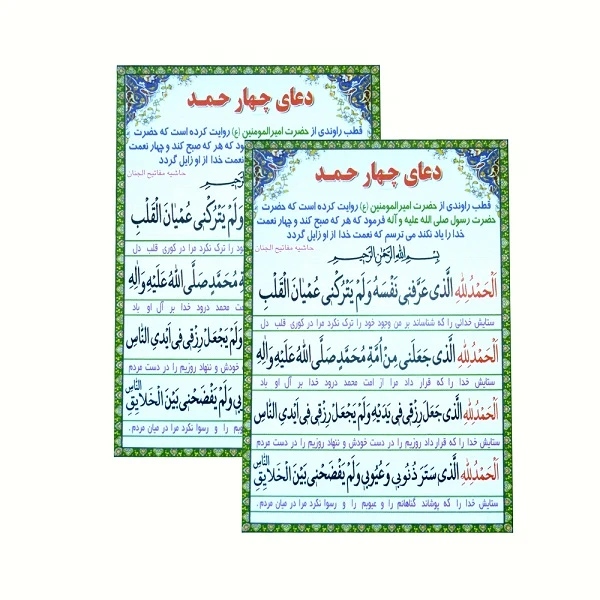 دعای چهار حمد
قطب راوندی از حضرت امیرالمومنین (ع) روایت کرده است که حضرت
ود که هر که صبح کند و چهار نعمت
نعمت خدا از او زایل گردد
حاشیه مفاتیح الجنان
وَلَمْ يَتْرُكْنى عُمْيانَ الْقَلْبِ
ود را ترک نکرد مرا در کوری قلب دل
مُحَمَّدٍ صَلَّى اللهُ عَلَيْهِ وَالِهِ
امت محمد درود خدا بر آل او باد
وَلَمْ يَجْعَلْ رِزْقى فى اَيْدِى النّاسِ
خودش و ننهاد روزیم را در دست مردم
وَلَمْ يَفْضَحْنى بَيْنَ الْخَلايِقِ النّاسِ
عیوبم را و رسوا نکرد مرا در میان مردم
دعای چهار حمد
قطب راوندی از حضرت امیرالمومنین (ع) روایت کرده است که حضرت
حضرت رسول صلی الله علیه و آله فرمود که هر که صبح کند و چهار نعمت
خدا را یاد نکند می ترسم که نعمت خدا از او زایل گردد
حاشیه مفاتیح الجنان
بِسْمِ اللهِ الرَّحْمنِ الرَّحيمِ
اَلْحَمْدُ لِلّهِ الَّذى عَرَّفَنى نَفْسَهُ وَلَمْ يَتْرُكْنى عُمْيانَ الْقَلْبِ
ستایش خدائی را که شناساند بر من وجود خود را ترک نکرد مرا در کوری قلب دل
اَلْحَمْدُ لِلّهِ الَّذى جَعَلَنى مِنْ اُمَّةِ مُحَمَّدٍ صَلَّى اللهُ عَلَيْهِ وَالِهِ
ستایش خدا را که قرار داد مرا از امت محمد درود خدا بر آل او باد
اَلْحَمْدُ لِلّهِ الَّذى جَعَلَ رِزْقى فى يَدَيْهِ وَلَمْ يَجْعَلْ رِزْقى فى اَيْدِى النّاسِ
ستایش خدا را که قرار داد روزیم را در دست خودش و ننهاد روزیم را در دست مردم
اَلْحَمْدُ لِلّهِ الَّذى سَتَرَ ذُنُوبى وَعُيُوبى وَلَمْ يَفْضَحْنى بَيْنَ الْخَلايِقِ النّاسِ
ستایش خدا را که پوشاند گناهانم را و عیوبم را و رسوا نکرد مرا در میان مردم.